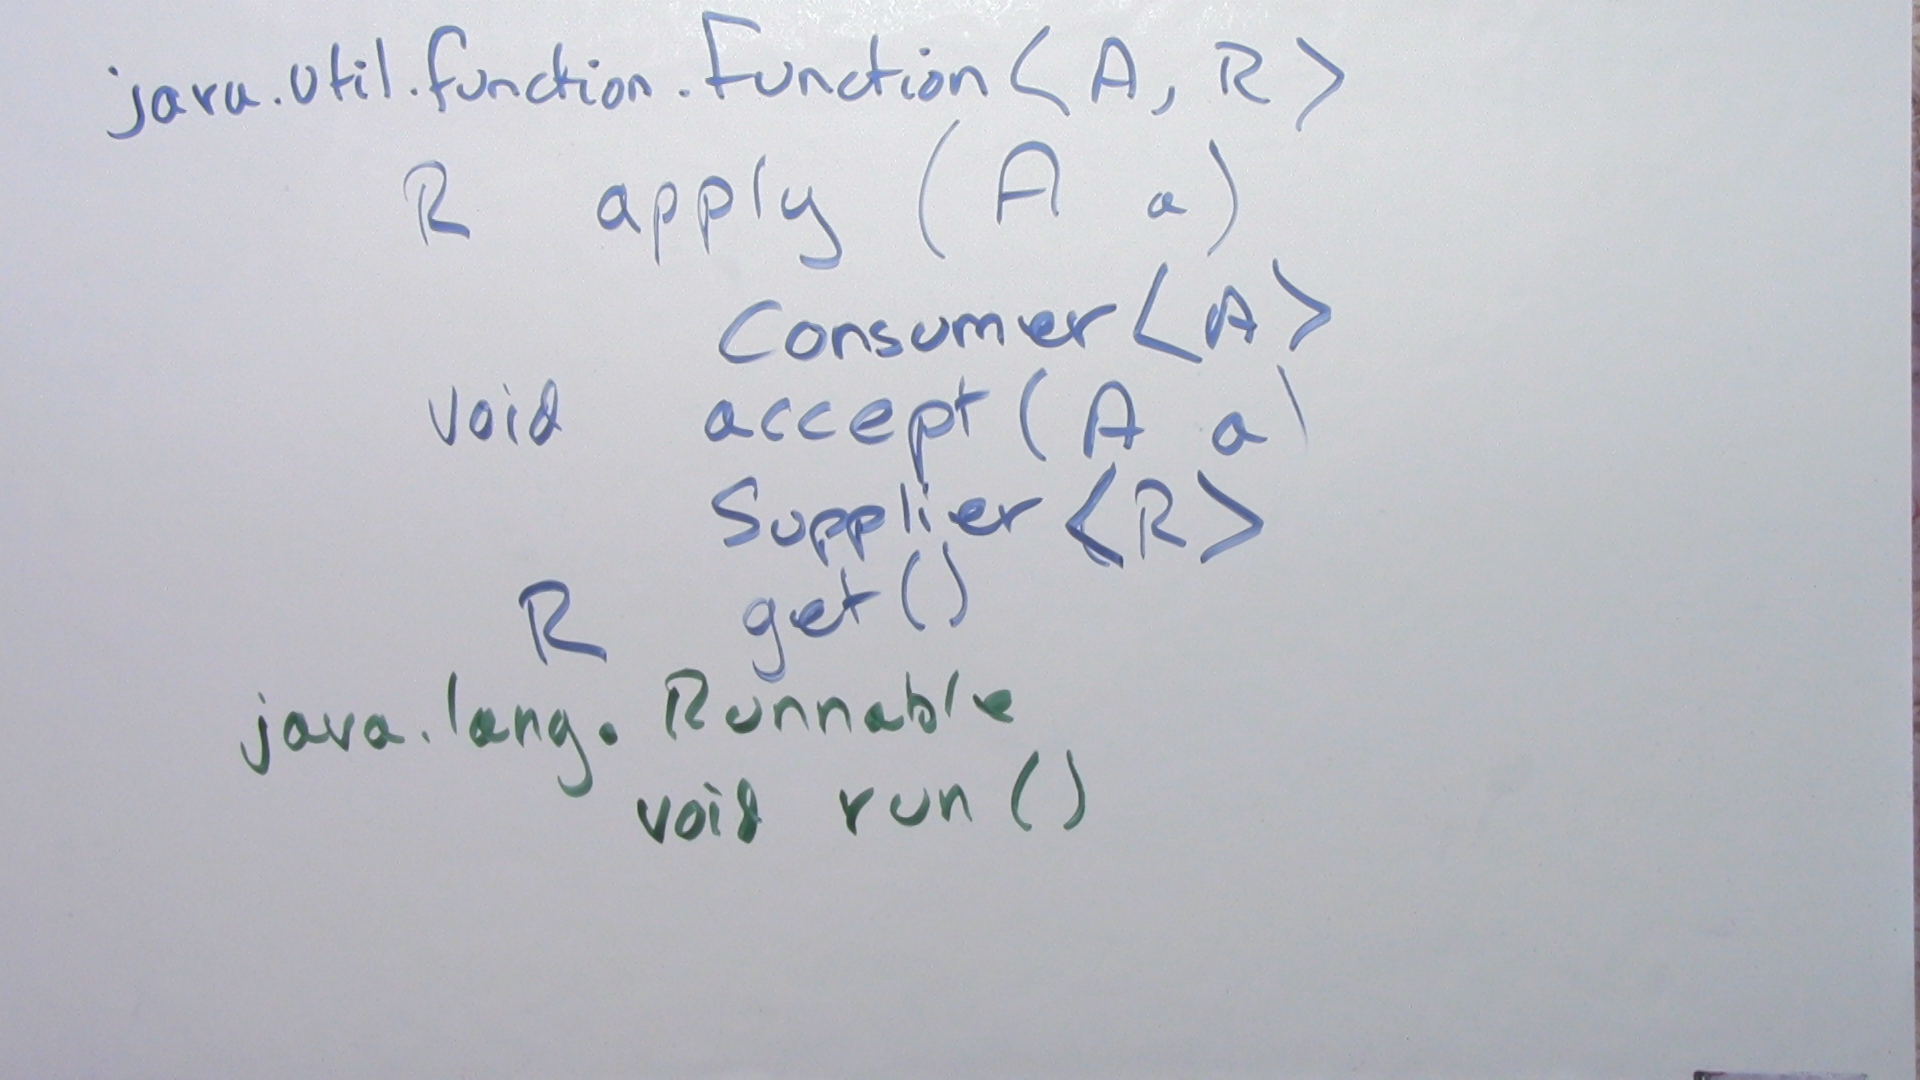 java.util.function.Function<A, R>
R apply (A a)
Consumer<A>
void accept(A a)
Supplier<R>
R get()
java.lang.Runnable
void run()